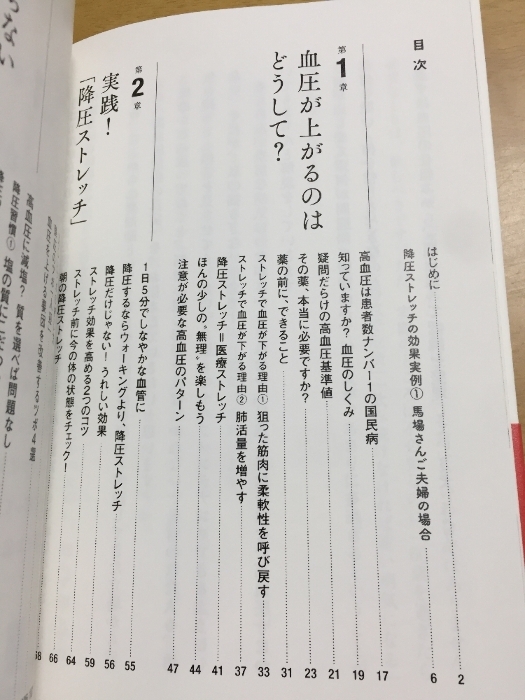 目次
はじめに 2
降圧ストレッチの効果実例① 馬場さんご夫婦の場合 6
第1章
血圧が上がるのは
どうして？
高血圧は患者数ナンバー1の国民病 17
知っていますか？ 血圧のしくみ 19
疑問だらけの高血圧基準値 21
その薬、本当に必要ですか？ 23
薬の前に、できること 31
ストレッチで血圧が下がる理由① 狙った筋肉に柔軟性を呼び戻す 33
ストレッチで血圧が下がる理由② 肺活量を増やす 37
降圧ストレッチ＝医療ストレッチ 41
ほんの少しの“無理”を楽しもう 44
注意が必要な高血圧のパターン 47
第2章
実践！
「降圧ストレッチ」
1日5分でしなやかな血管に 55
降圧するならウォーキングより、降圧ストレッチ 56
降圧だけじゃない！ うれしい効果 59
ストレッチ効果を高める2つのコツ 64
ストレッチ前に今の体の状態をチェック！ 66
朝の降圧ストレッチ 68
高血圧に減塩？ 質を選べば問題なし
降圧習慣① 塩の質にこだ